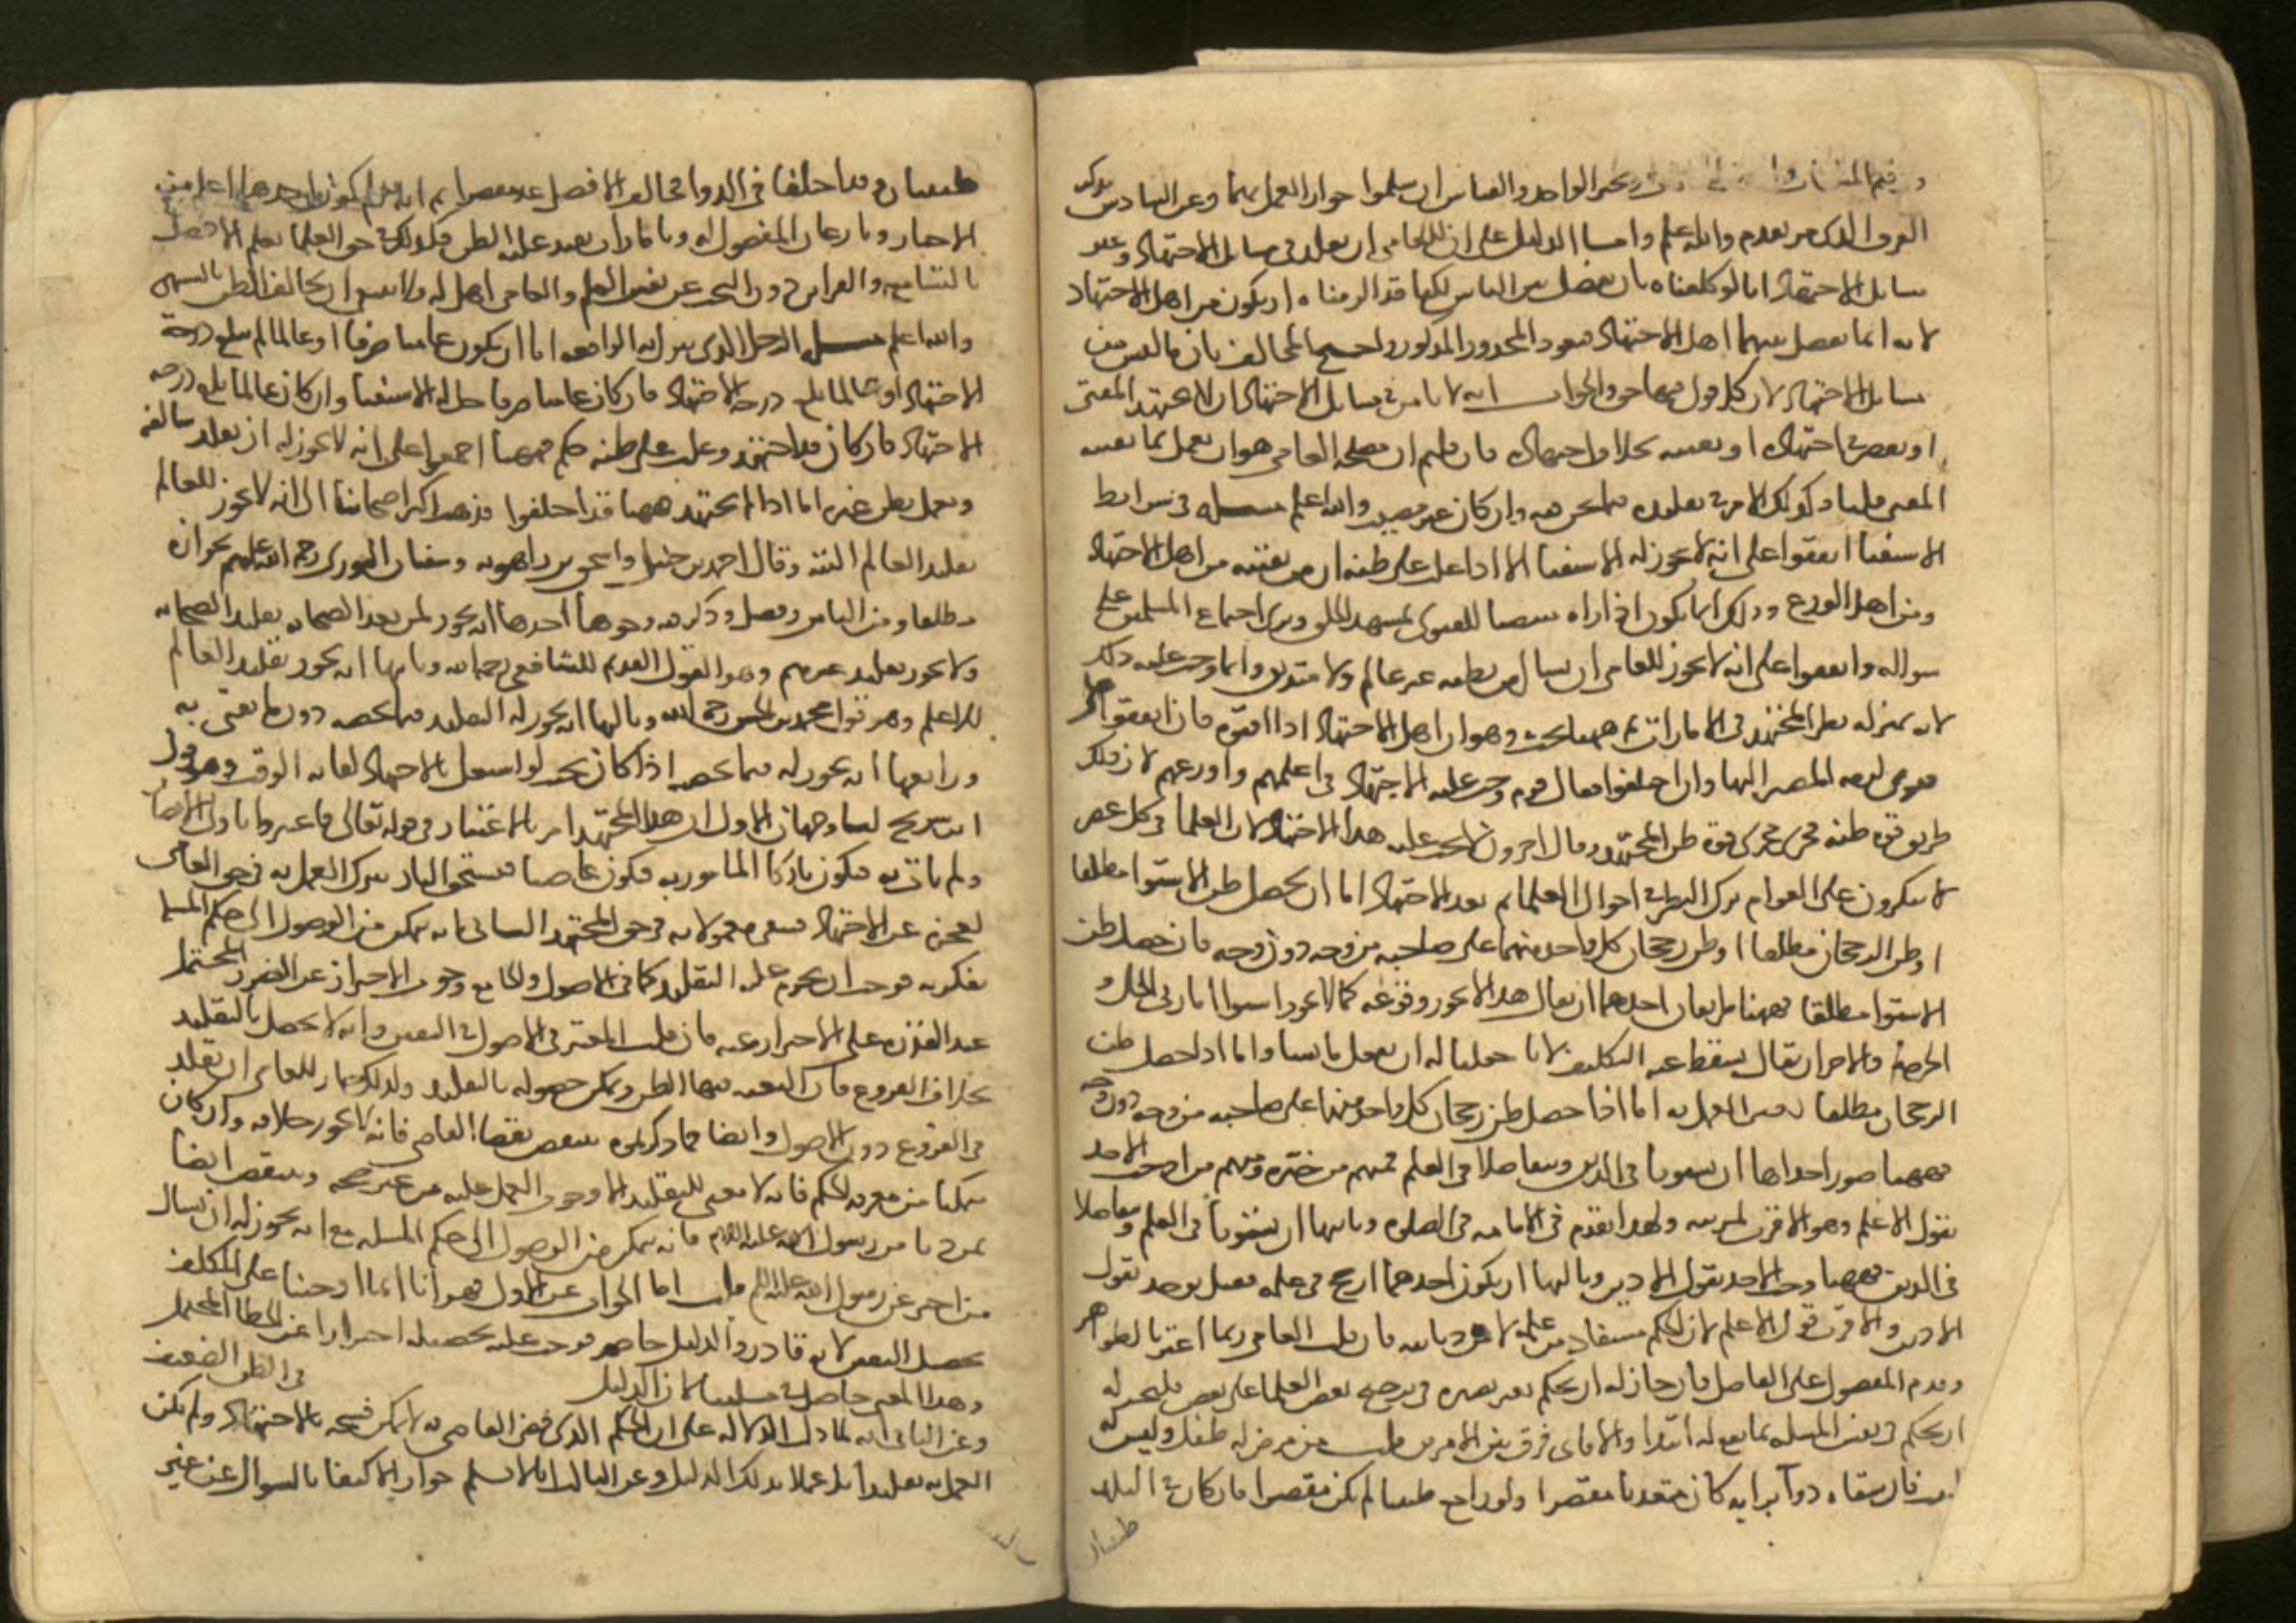 وقيم المتلفات وخبر الواحد والقياس ان سلموا جواز العمل بهما وعن السادس نذكر
الفرق الذي مر تقدم والله اعلم واما الدليل على ان للعامي ان يقلد في مسائل الاجتهاد وغير
مسائل الاجتهاد انا لو كلفناه بان يفصل بين الناس لكنا قد الزمناه ان يكون من اهل الاجتهاد
لانه انما يفصل بينهما اهل الاجتهاد فيعود المحذور المذكور واحتج المخالف بان ما ليس من
مسائل الاجتهاد لان كل قول فيها حق والجواب انه لا يامن في مسائل الاجتهاد ان لا يجتهد المفتي
او يقصر في اجتهاده او يفتيه بخلاف اجتهاده فان قلتم ان مصلحة العامي هو ان يعمل بما يفتيه
المفتي قلنا وكذلك الامر في تقليده فيما نحن فيه وان كان غير مصيب والله اعلم مسئلة في شرايط
الاستفتا اتفقوا على انه لا يجوز له الاستفتا الا اذا غلب على ظنه ان من يفتيه من اهل الاجتهاد
ومن اهل الورع وذلك انما يكون اذا راه منتصبا للفتوى بمشهد الخلق ويرى اجتماع المسلمين على
سواله واتفقوا على انه لا يجوز للعامي ان يسال من يظنه غير عالم ولا متدين وانما وجب عليه ذلك
لانه بمنزلة نظر المجتهد في الامارات ثم ههنا بحث وهو ان اهل الاجتهاد اذا افتوه فان اتفقوا على
فتوى لزمه المصير اليها وان اختلفوا فقال قوم وجب عليه الاجتهاد في اعلمهم واورعهم لان ذلك
طريق قوة ظنه فجرى مجرى قوة ظن المجتهد وقال اخرون لا يجب عليه هذا الاجتهاد لان العلما في كل عصر
لا ينكرون على العوام ترك النظر في احوال العلما ثم بعد الاجتهاد اما ان يحصل ظن الاستوا مطلقا
او ظن الرجحان مطلقا او ظن رجحان كل واحد منهما على صاحبه من وجه دون وجه فان حصل ظن
الاستوا مطلقا فههنا طريقان احدهما ان يقال هذا لا يجوز وقوعه كما لا يجوز استوا امارتي الحل و
الحرمة والاخر ان يقال يسقط عنه التكليف لانا جعلنا له ان يعمل بما يشا واما اذا حصل ظن
الرجحان مطلقا تعين العمل به اما اذا حصل ظن رجحان كل واحد منهما على صاحبه من وجه دون وجه
فههنا صور احداها ان يستويا في الدين ويتفاضلا في العلم فمنهم من خيره ومنهم من اوجب الاخذ
بقول الاعلم وهو الاقرب لمزيته ولهذا يقدم في الامامه في الصلوه وثانيها ان يستويا في العلم ويتفاضلا
في الدين فههنا وجب الاخذ بقول الادين وثالثها ان يكون احدهما ارجح في علمه فقيل يوخذ بقول
الادين والاقرب قول الاعلم لان الحكم مستفاد من علمه لا من ديانته فان قلت العامي ربما اغتر بالظواهر
وقدم المفضول على الفاضل فان جاز له ان يحكم بغير بصيرة في ترجيح بعض العلما على بعض فليجز له
ان يحكم في نفس المسله بما يقع له ابتدا والا فاي فرق بين الامرين قلت من مرض له طفل وليس له
فان سقاه دوآ برايه كان متعديا مقصرا ولو راجع طبيبا لم يكن مقصرا فان كان في البلد
طبيبان
طبيبان وقد اختلفا في الدوا فخالف الافضل عد مقصرا ثم انه يعلم كون احدهما اعلم من
الاخبار وباذعان المفضول له وبامارات تفيد غلبة الظن فكذلك في حق العلما يعلم الافضل
بالتسامع والقراين دون البحث عن نفس العلم والعامي اهل له ولا ينبغي ان يخالف الظن بالتشهي
والله اعلم مسئلة الرجل الذي تنزل به الواقعه اما ان يكون عاميا صرفا او عالما لم يبلغ درجة
الاجتهاد او عالما بلغ درجة الاجتهاد فان كان عاميا صرفا حل له الاستفتا وان كان عالما بلغ درجه
الاجتهاد فان كان قد اجتهد وغلب على ظنه حكم فههنا اجمعوا على انه لا يجوز له ان يقلد مخالفه
ويعمل بظن غيره اما اذا لم يجتهد فههنا قد اختلفوا فذهب اكثر اصحابنا الى انه لا يجوز للعالم
تقليد العالم البتة وقال احمد بن حنبل واسحق بن راهويه وسفيان الثوري رحمة الله عليهم بجوازه
مطلقا ومن الناس من فصل وذكر فيه وجوها احدها انه يجوز لمن بعد الصحابه تقليد الصحابه
ولا يجوز تقليد غيرهم وهو القول القديم للشافعي رحمه الله وثانيها انه يجوز تقليد العالم
للاعلم وهو قول محمد بن الحسن رحمه الله وثالثها انه يجوز له التقليد فيما يخصه دون ما يفتي به
ورابعها انه يجوز له فيما يخصه اذا كان بحيث لو اشتغل بالاجتهاد لفاته الوقت وهو قول
ابن سريج لنا وجهان الاول ان هذا المجتهد امر بالاعتبار في قوله تعالى فاعتبروا يا اولي الابصار
ولم يات به فيكون تاركا المامور به فيكون عاصيا فيستحق النار ترك العمل به في حق العامي
لعجزه عن الاجتهاد فيبقى معمولا به في حق المجتهد الثاني انه يمكن من الوصول الى حكم المسله
بفكرته فوجب ان يحرم عليه التقليد كما في الاصول والجامع وجوب الاحتراز عن الضرر المحتمل
عند القدرة على الاحتراز عنه فان قلت المعتبر في الاصول اليقين وانه لا يحصل بالتقليد
بخلاف الفروع فان المعتبر فيها الظن ويمكن حصوله بالتقليد ولذلك جاز للعامي ان يقلد
في الفروع دون الاصول وايضا فما ذكرتموه ينتقض بقضا القاضي فانه لا يجوز خلافه وان كان
متمكنا من معرفة الحكم فانه لا معنى للتقليد الا وجوب العمل عليه من غير حجه وينتقض ايضا
بمن دنا من رسول الله عليه السلم فانه يتمكن من الوصول الى حكم المسله مع انه يجوز له ان يسال
من اخبر عن رسول الله عليه السلم قلت اما الجواب عن الاول فهو انا انما اوجبنا على المكلف
تحصيل اليقين لانه قادر والدليل حاصر فوجب عليه تحصيله احترازا عن الخطا المحتمل
وهذا المعنى حاصل في مسلتنا لان الدليل في الظن الضعيف
وعن الثاني انه لما دل الدلاله على ان الحكم الذي قضى القاضي به لا يمكن فسخه بالاجتهاد ولم يكن
العمل به تقليدا بل عملا بذلك الدليل وعن الثالث انا لا نسلم جواز الاكتفا بالسوال عن غير